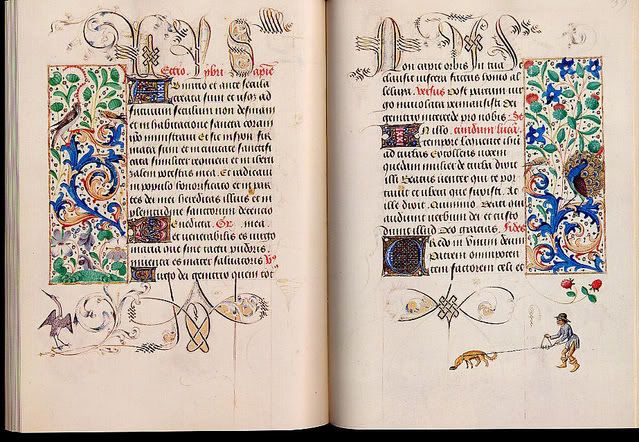 Lectio lybri sapie
Ab initio et ante secula
creata sum et usqz ad
futurum seculum non desinam
et in habitatione sancta coram
ministravi Et sic in syon fir
mata sum et in civitate sanctifi
cata similiter requievi et in
potestas mea. Et radicavi
in populo honorificato et in par
tes dei mei hereditas illius et in
plenitudine sanctorum detencio
Benedicta. Gr. mea.
et venerabilis es virgo
maria que sine tactu pudoris
inventa es mater salvatoris
Virgo dei genitrix quem tot
Non capit orbis in tua
clausit viscera factus homo al
leluia. Versus Post partum vir
go inviolata permansisti Dei
genitrix intercede pro nobis. Se
In illo. cundum lucam
tempore loquente ihesu
ad turbas Extollens vocem
quedam mulier de turba dixit
illi Beatus venter qui te por
tavit et ubera que suxisti. At
ille dixit. Quinimo. Beati qui
audiunt verbum dei et custo
diunt illud Deo gratias. Fides
Credo in Unum deum
Patrem omnipoten
tem factorem celi et